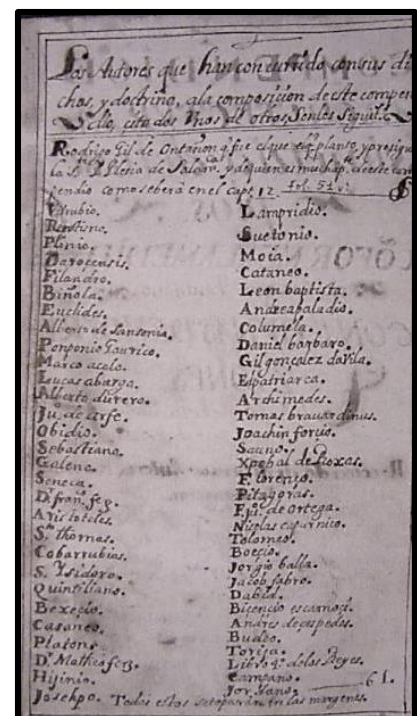 Los Autores que han concurrido con sus di
chos, y doctrina, a la composicion de este compen
dio, cito dos Unos de otros, Senlos Siguit.
Rodrigo Gil de Ontañon q. fue el que
la S. Iglesia de Salam.
pendio como se berá en el cap. 12. fol. 51
Vitrubio.
Plinio.
Filandro.
Biñola.
Euclides.
Alberto de Sansonia.
Ponponio Gaurico.
Marco
Lucas abarga.
Alberto durero.
Ju. de arfe.
Obidio.
Sebastiano.
Galeno.
Seneca.
D. fran. fez.
Aristoteles.
S. thomas.
Cobarrubias.
S. Ysidoro.
Quintiliano.
Bexecio.
Casaneo.
Platon.
D. Matheo fez.
Hijinio.
Josehpo.
Lampridio.
Suetonio.
Moia.
Cataneo.
Leon baptista.
Andrea paladio.
Columela.
Daniel barbaro.
Gil gonçalez davila.
El patriarca.
Archimedes.
Tomas brauardinus.
Joachin forcio.
Xpobal de Roxas.
F. lorenço.
Pitagoras.
F. ju. de ortega.
Nicolas copernico.
Tolomeo.
Boecio.
Jorgio balla.
Jacob fabro.
Dabid.
Bicencio escamoçi.
Andres de cespedes.
Budeo.
Torija.
Libro 4. de los Reyes.
Campano.
Jordano. 61.
Todos estos se toparán en las margenes.